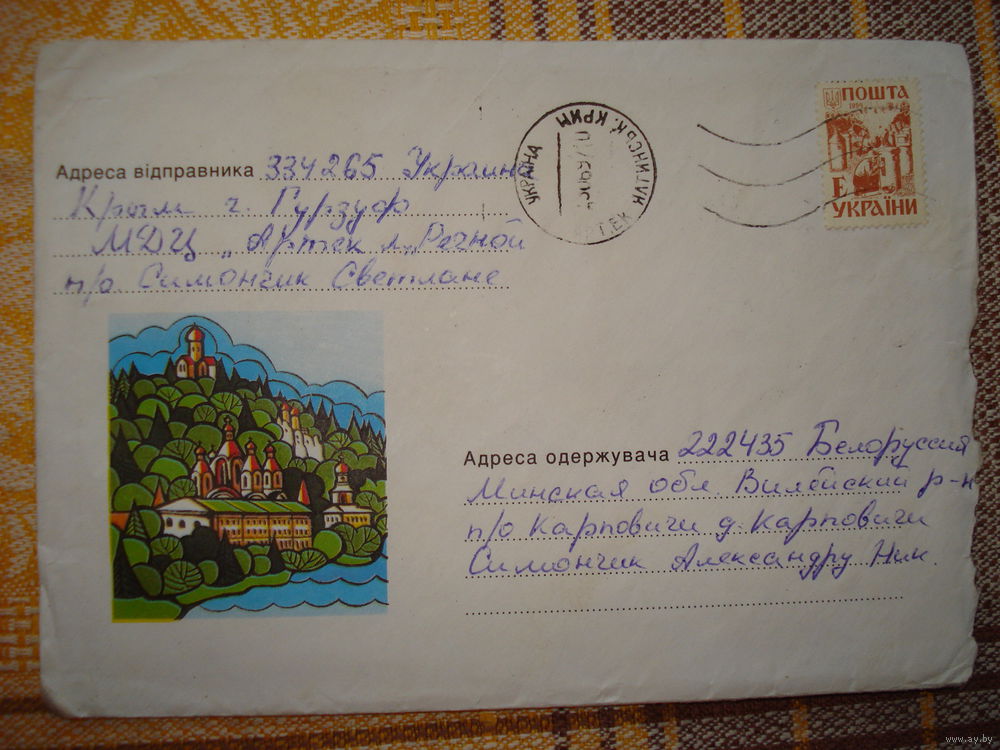 Адреса відправника 334265 Украина
Крым г. Гурзуф
МДЦ „Артек л. „Речной
п/о Симончик Светлане
УКРАЇНА
КРИМ
ПОШТА
Е
УКРАЇНИ
Адреса одержувача 222435 Белоруссия
Минская обл. Вилейский р-н
п/о Карповичи д. Карповичи
Симончик Александру Ник.
www.ay.by